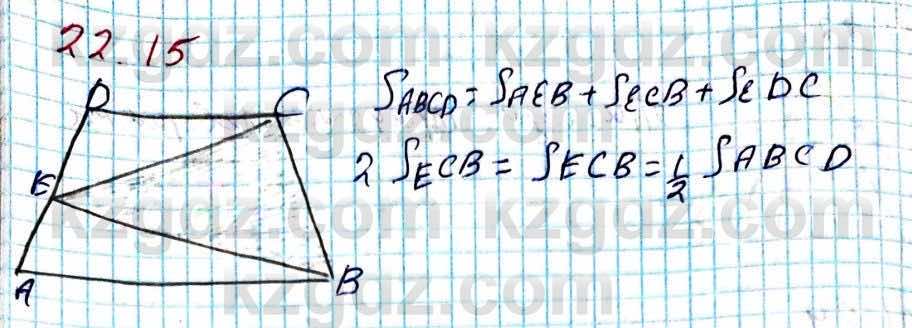 22.15
D C
S_ABCD = S_AEB + S_ECB + S_EDC
2 S_ECB = S_ECB = 1/2 S_ABCD
E
A B
kzgdz.com kzgdz.com
kzgdz.com kzgdz.com
kzgdz.com kzgdz.com
kzgdz.com